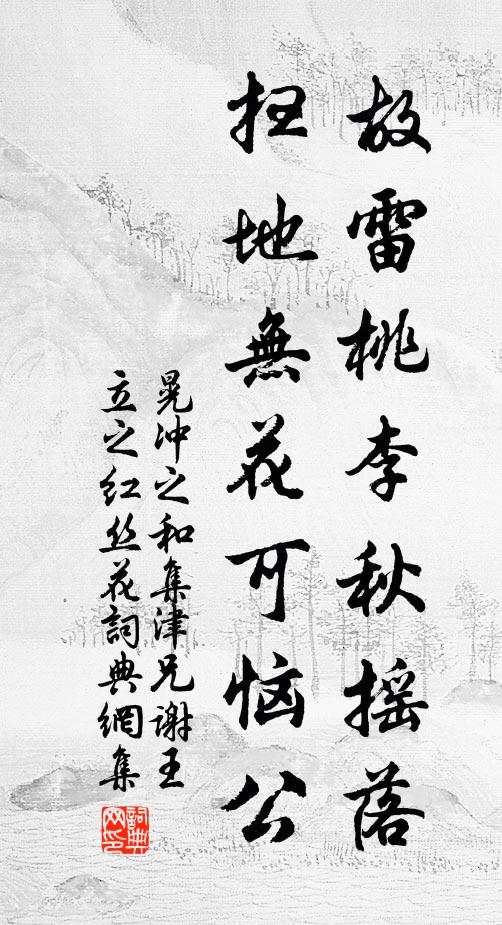 故雷桃李秋摇落
扫地無花可恼公
晃冲之和集津兄谢王
立之红丝花詞典網集
詞典網印